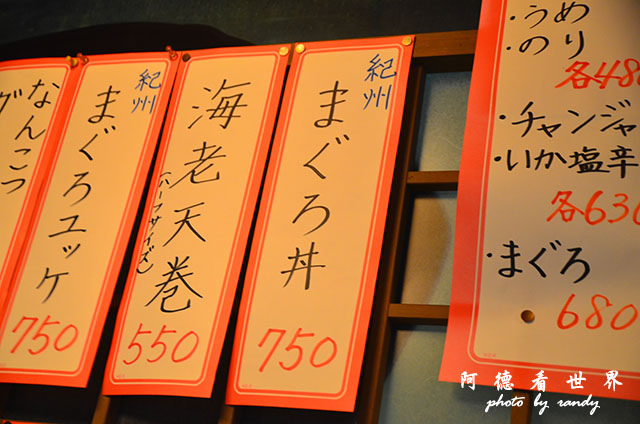 ・うめ
・のり
各480
・チャンジャ
・いか塩辛
各630
・まぐろ
680
紀州
まぐろ丼
750
海老天巻
(ハーフサイズ)
550
紀州
まぐろユッケ
750
なんこつ
阿德看世界
photo by randy